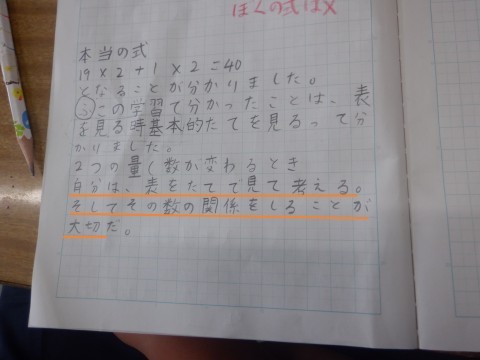 ぼくの式は×
本当の式
19×2+1×2=40
となることが分かりました。
ふこの学習で分かったことは、表
を見る時基本的たてを見るって分
かりました。
2つの量し数が変わるとき
自分は、表をたてで見て考える。
そしてその数の関係をしることが
大切だ。